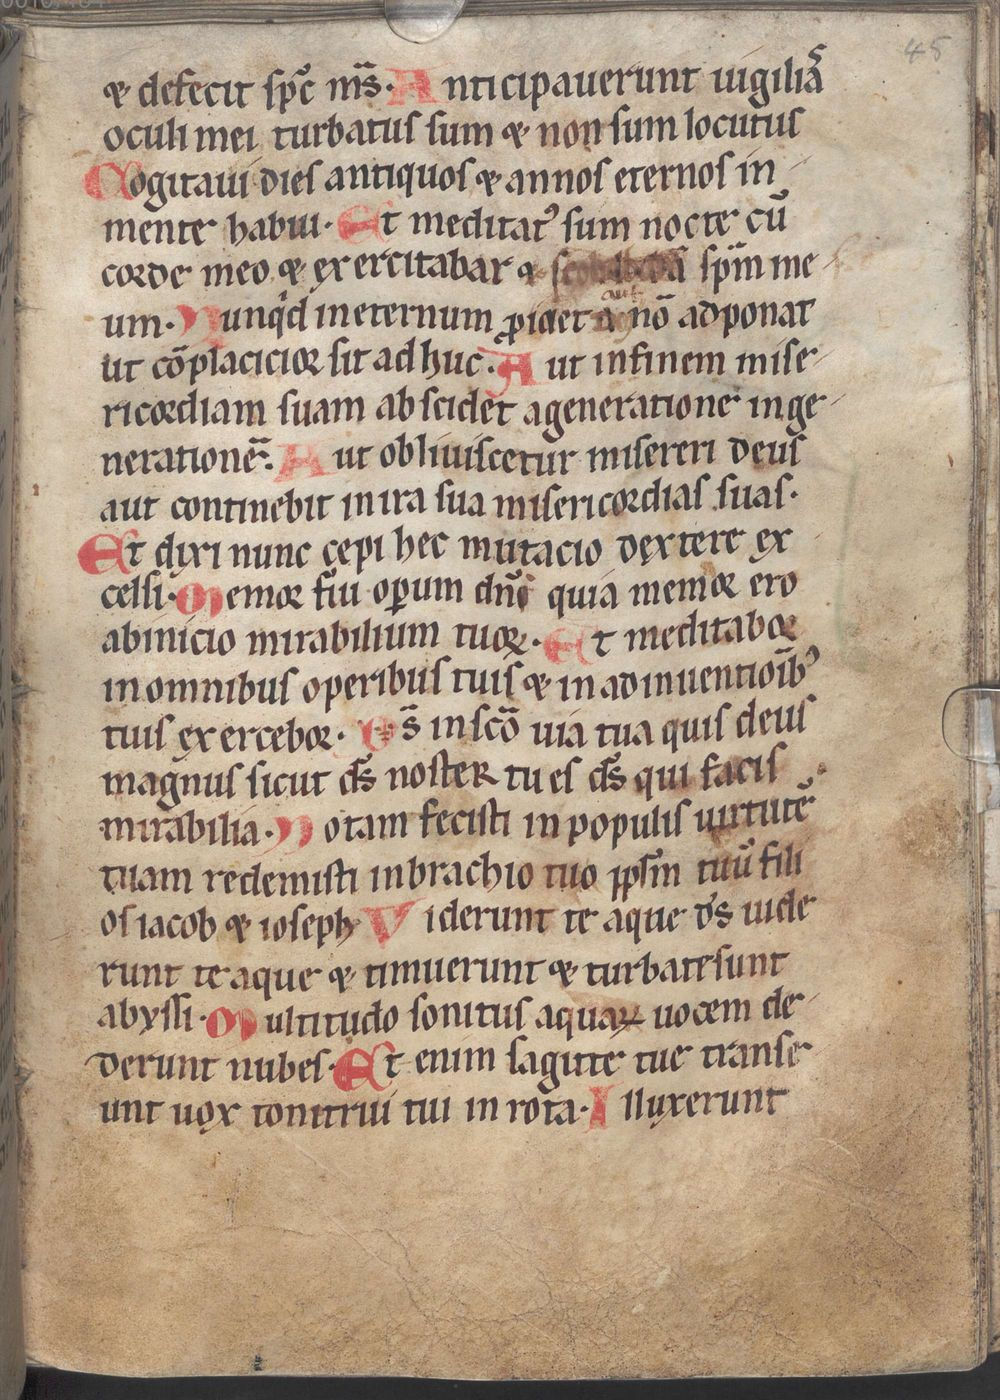 45
⁊ defecit sp̄c m̄s. Anticipauerunt uigiliās
oculi mei turbatus sum ⁊ non sum locutus
Cogitaui dies antiquos ⁊ annos eternos in
mente habui. Et meditatꝰ sum nocte cū
corde meo ⁊ exercitabar ⁊ sp̄m me
um. Nunqͥd in eternum ꝓiciet aut nō adponat
ut cōplacicior sit ad huc. Aut in finem mise
ricordiam suam abscidet a generatione in ge
neratione᷒. Aut obliuiscetur misereri deus
aut continebit in ira sua misericordias suas.
Et dixi nunc cepi hec mutacio dextere ex
celsi. Memor fui oꝑum dn̄i quia memor ero
ab inicio mirabilium tuoꝝ. Et meditabor
in omnibus operibus tuis ⁊ in adinuentioībꝰ
tuis exercebor. Ds̄ in scō uia tua quis deus
magnus sicut ds̄ noster tu es ds̄ qui facis
mirabilia. Notam fecisti in populis uirtutē
tuam redemisti in brachio tuo ppl̄m tuū fili
os iacob ⁊ ioseph Viderunt te aque ds̄ uide
runt te aque ⁊ timuerunt ⁊ turbate sunt
abyssi. Multitudo sonitus aquaꝝ uocem de
derunt nubes. Et enim sagitte tue transe
unt uox tonitrui tui in rota. Illuxerunt